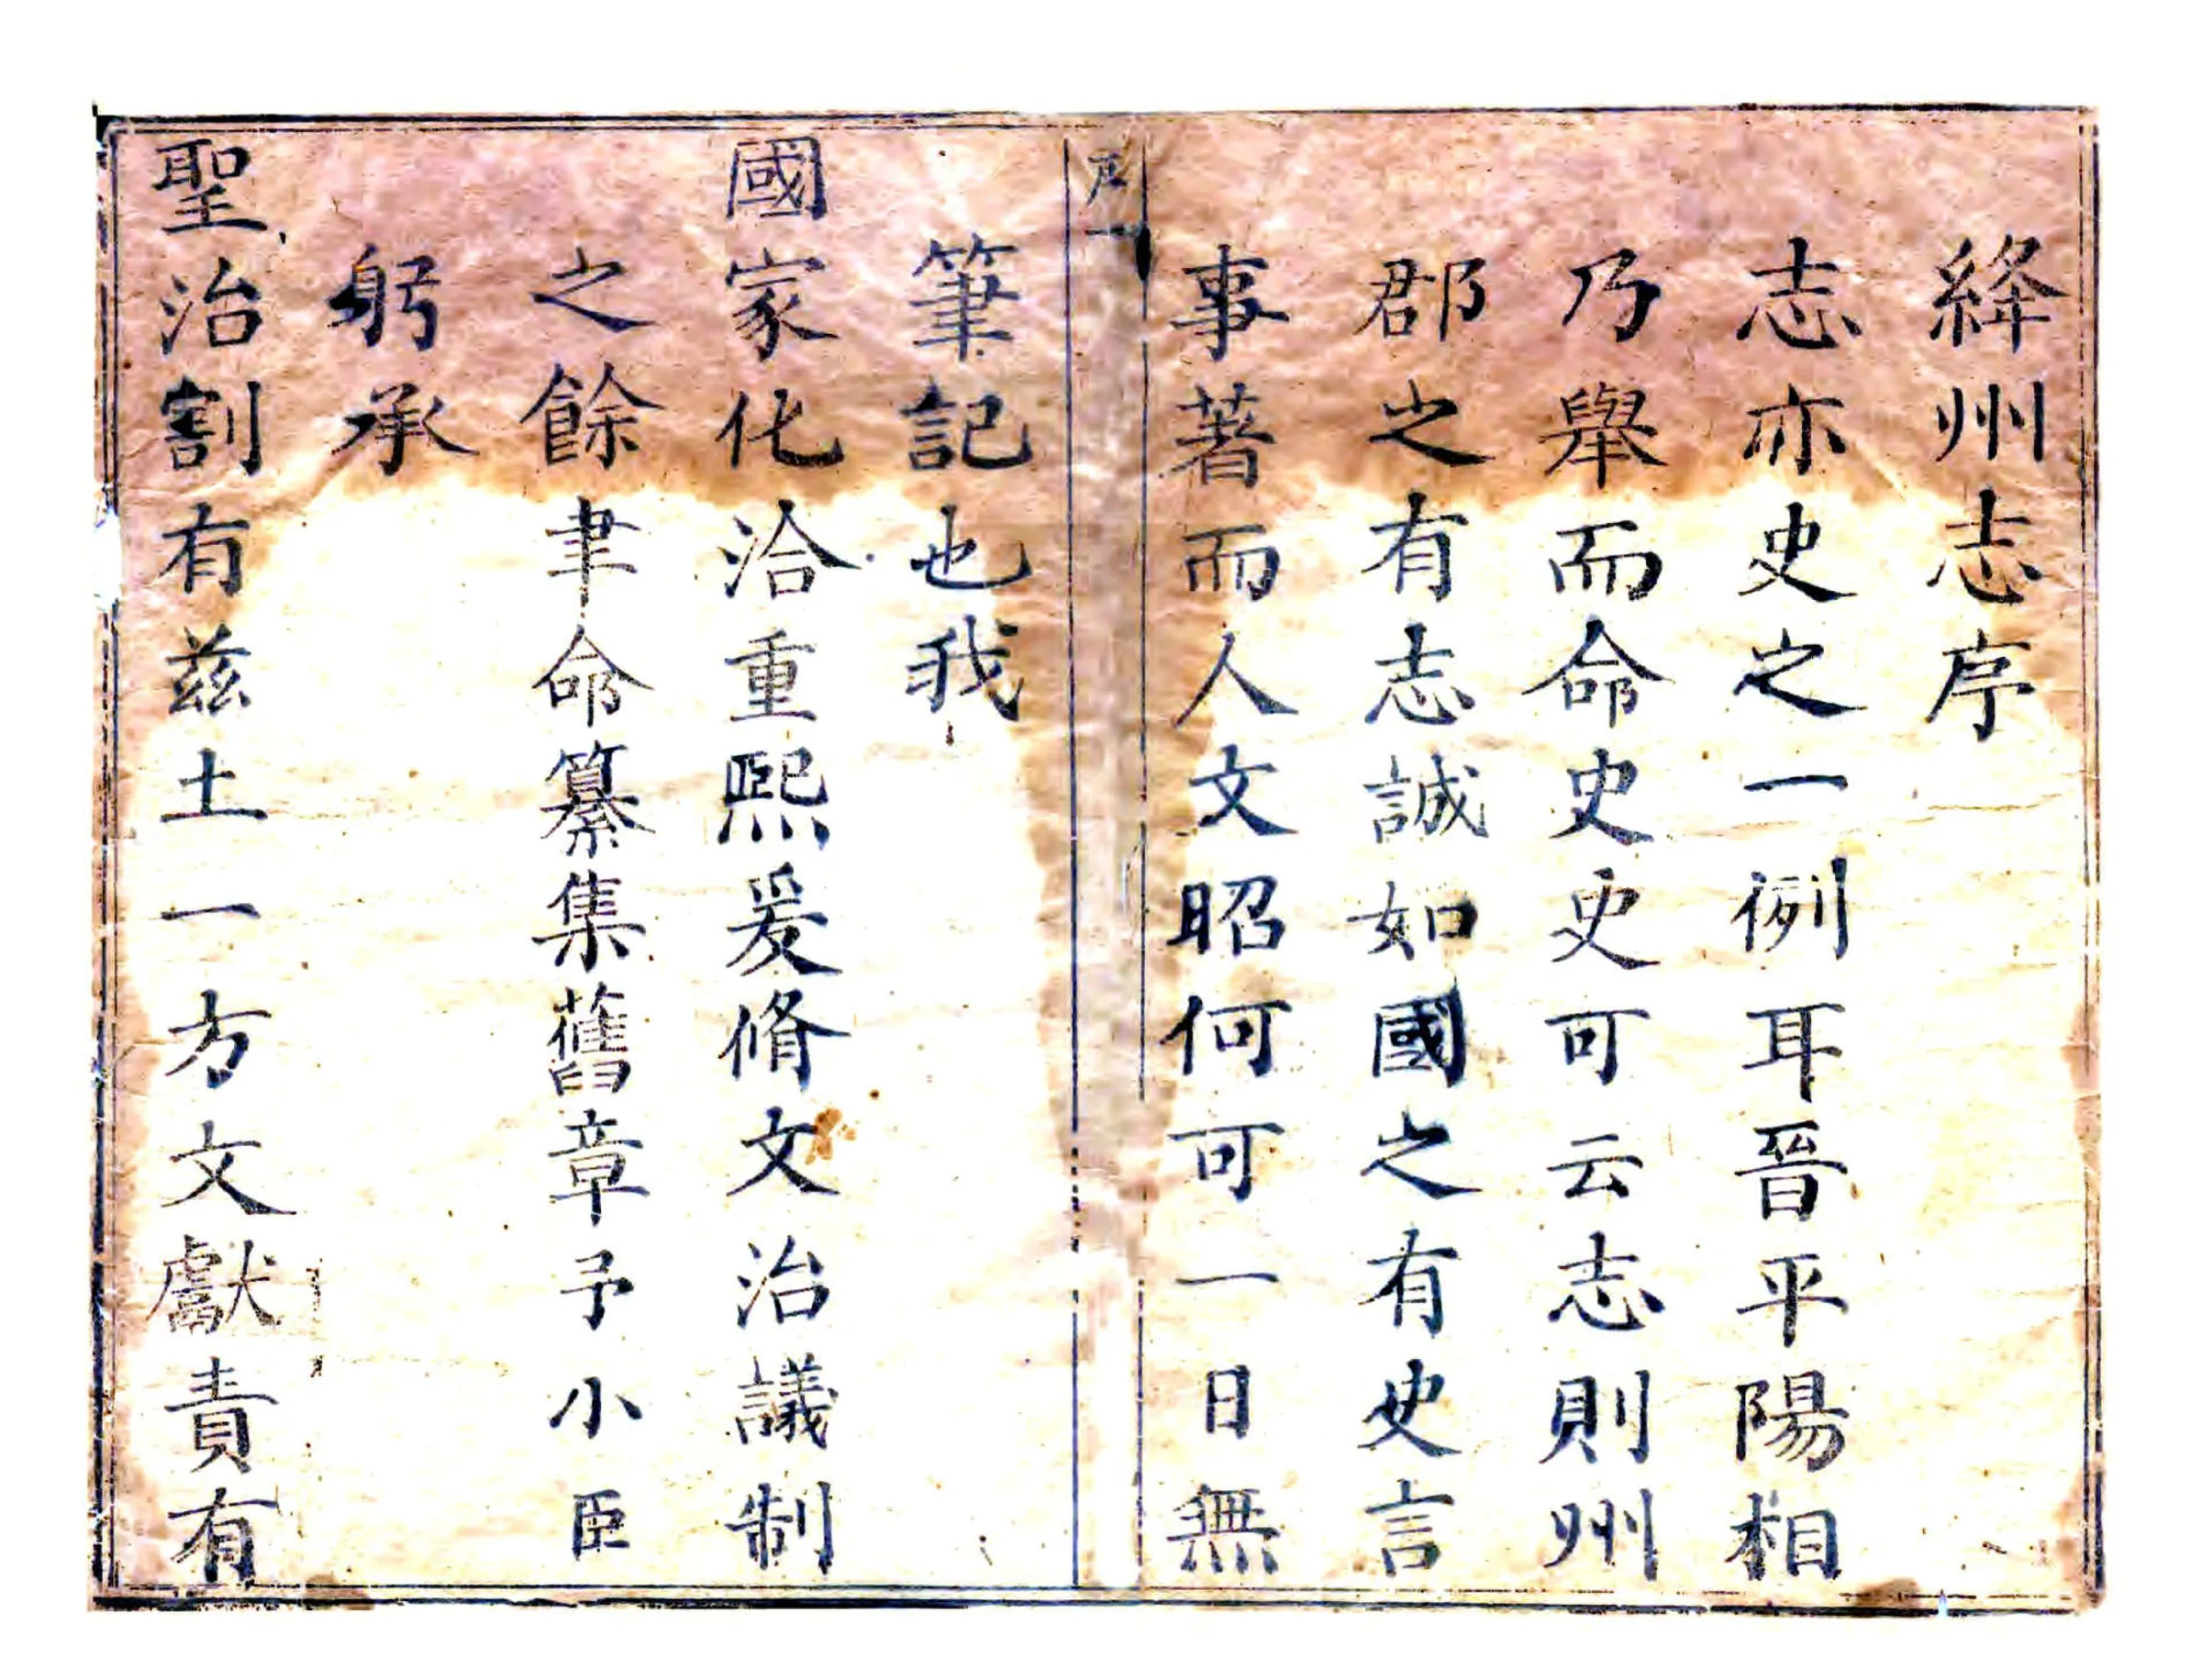 絳州志序
志亦史之一例耳晉平陽相
乃舉而命史史可云志則州
郡之有志誠如國之有史言
事著而人文昭何可一日無
序一
筆記也我
國家化洽重熙爰脩文治議制
之餘聿命纂集舊章予小臣
躬承
聖治割有茲土一方文獻責有